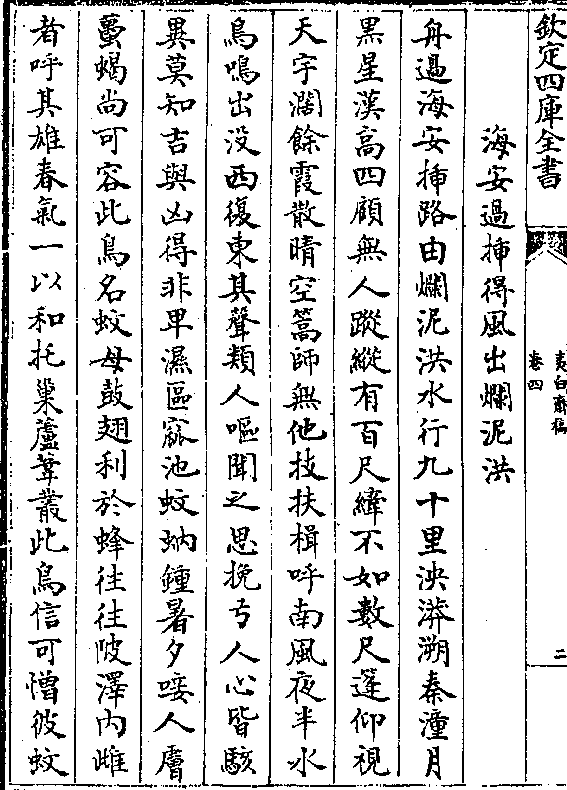 欽定四庫全書
夷白齋稿
卷四
二
海安過揷得風出爛泥洪
舟過海安揷路由爛泥洪水行九十里泱漭溯秦潼月
黑星漢高四顧無人蹤縱有百尺縴不如數尺篷仰視
天宇濶餘霞散晴空篙師無他技扶楫呼南風夜半水
鳥鳴出没西復東其聲類人嘔聞之思挽弓人心皆駭
異莫知吉與凶得非卑濕區窊池蚊蚋鍾暑夕唼人膚
蠆蝎尚可容此鳥名蚊母鼓翅利於蜂往往陂澤内雌
者呼其雄春氣一以和托巢蘆葦叢此鳥信可憎彼蚊